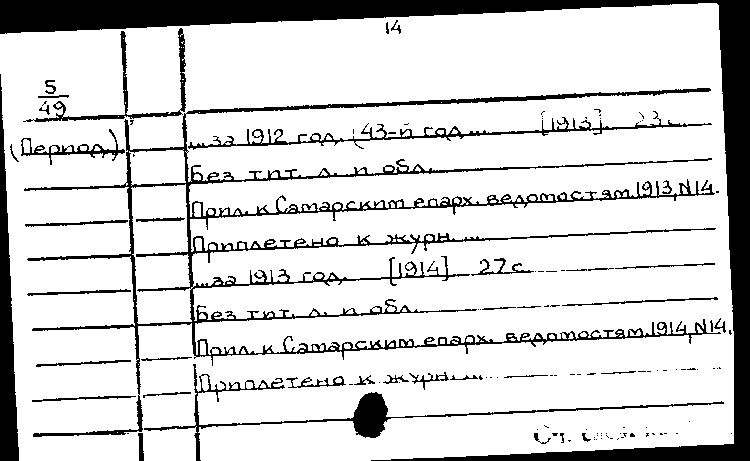 14
5
49
(Период.)
...за 1912 год. (43-й год... [1913]. 23 с.
Без тит. л. и обл.
Прил. к Самарским епарх. ведомостям 1913, N14.
Приплетено к журн. ...
...за 1913 год. [1914] 27 с.
Без тит. л. и обл.
Прил. к Самарским епарх. ведомостям 1914, N14.
Приплетено к журн. ...
См.